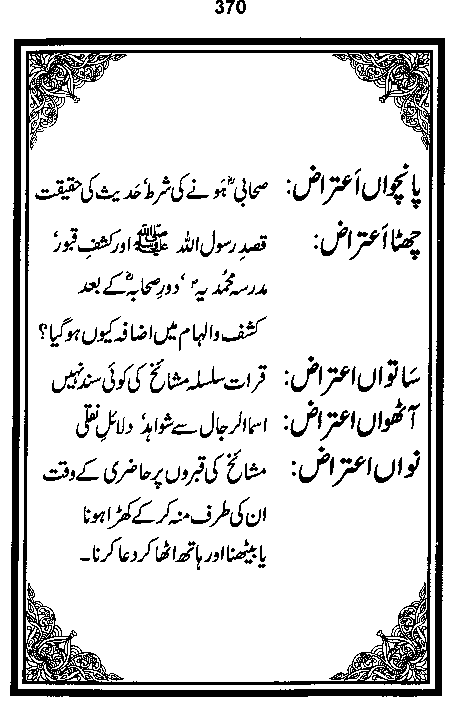 370
پانچواں اعتراض: صحابیؓ ہونے کی شرط، حدیث کی حقیقت
چھٹا اعتراض: قصدِ رسول اللہ ﷺ اور کشفِ قبور،
مدرسہ محمدیہؐ، دورِ صحابہؓ کے بعد
کشف والہام میں اضافہ کیوں ہوگیا؟
ساتواں اعتراض: قرات سلسلہ مشائخ کی کوئی سند نہیں
آٹھواں اعتراض: اسما الرجال سے شواہد، دلائلِ نقلی
نواں اعتراض: مشائخ کی قبروں پر حاضری کے وقت
ان کی طرف منہ کر کے کھڑا ہونا
یا بیٹھنا اور ہاتھ اٹھا کر دعا کرنا۔